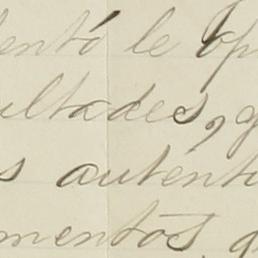 entó le op
ultades, g
s autént
mentos, g